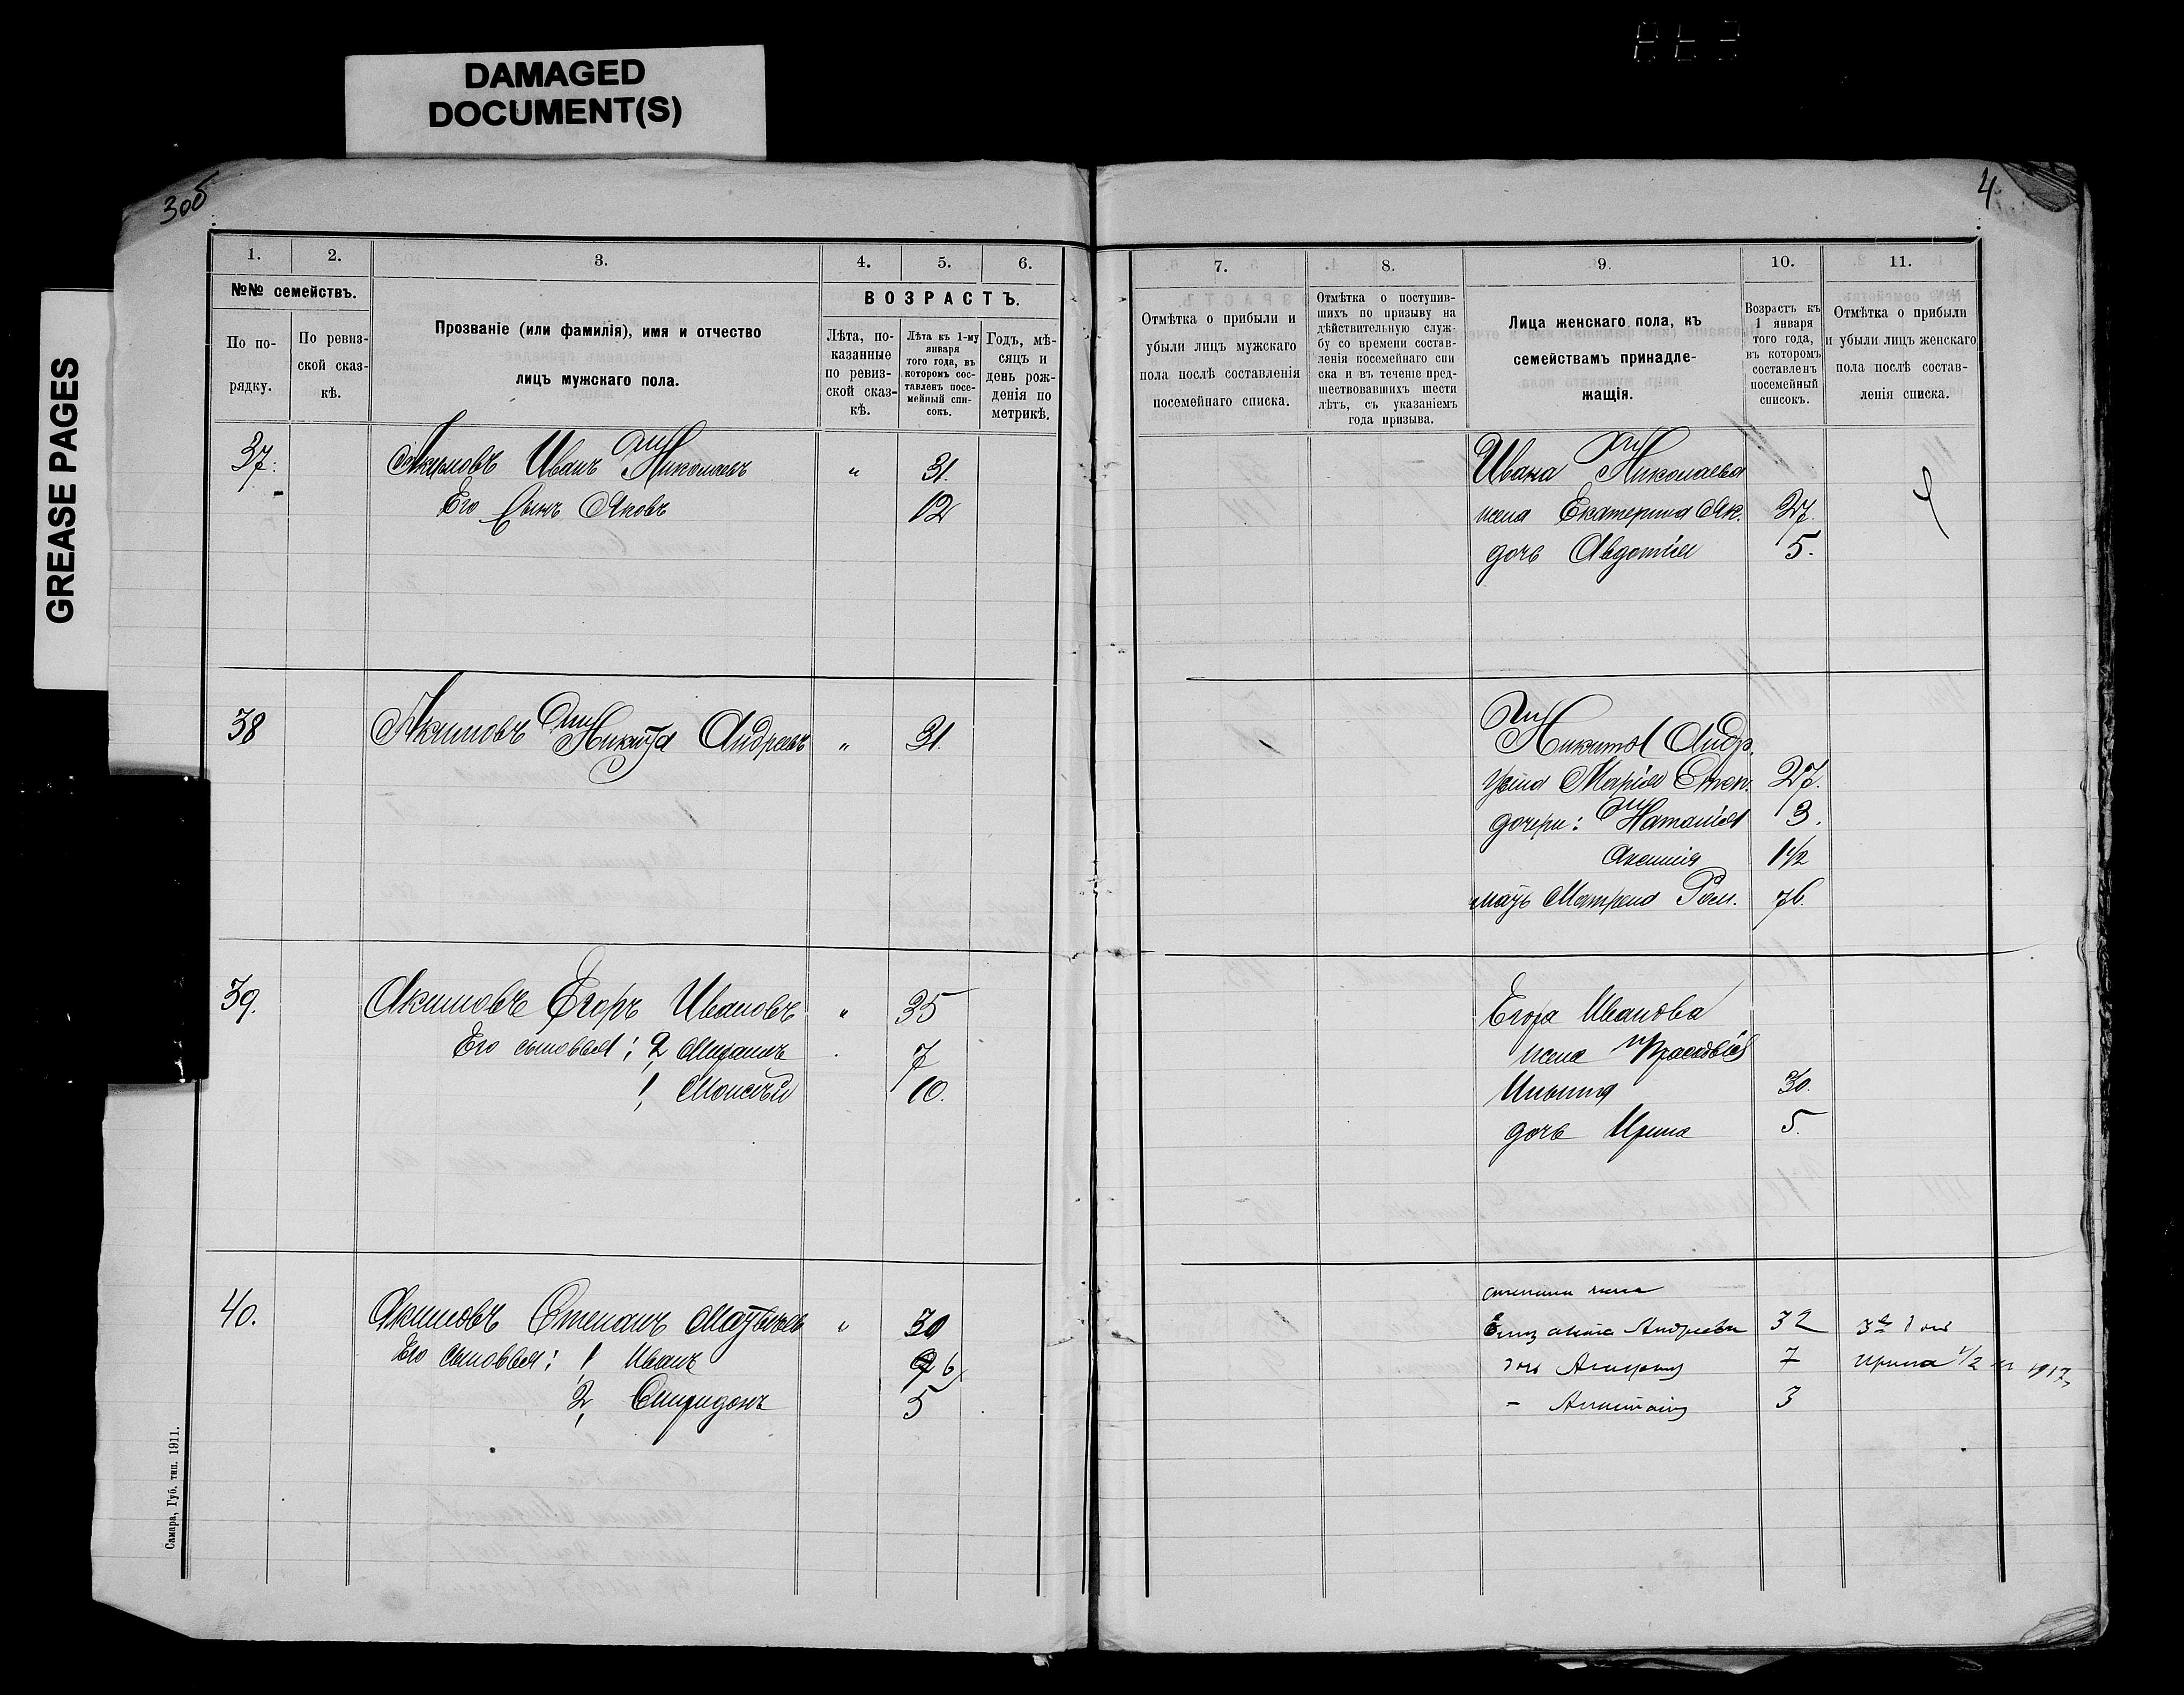 DAMAGED
DOCUMENT(S)
GREASE PAGES
3об
4.
1.
2.
3.
4.
5.
6.
№№ семействъ.
По по-
рядку.
По ревиз-
ской сказ-
кѣ.
Прозваніе (или фамилія), имя и отчество
лицъ мужскаго пола.
ВОЗРАСТЪ.
Лѣта, по-
казанные
по ревиз-
ской сказ-
кѣ.
Лѣта къ 1-му
января
того года, въ
которомъ сос-
тавленъ посе-
мейный спи-
сокъ.
Годъ, мѣ-
сяцъ и
день рож-
денія по
метрикѣ.
37. Акимовъ Иванъ Николаевъ „ 31.
Его Сынъ Яковъ 12
38 Акимовъ Никита Андреевъ „ 31.
39. Акимовъ Егоръ Ивановъ „ 35
Его сыновья: 2, 7
1, Моисѣй 10.
40. Акимовъ Степанъ Матвѣевъ „ 30
Его сыновья: 1 Иванъ 6
2, Спиридонъ 5
Самара, Губ. тип. 1911.
7.
8.
9.
10.
11.
Отмѣтка о прибыли и
убыли лицъ мужскаго
пола послѣ составленія
посемейнаго списка.
Отмѣтка о поступив-
шихъ по призыву на
дѣйствительную служ-
бу со времени состав-
ленія посемейнаго спи
ска и въ теченіе пред-
шествовавшихъ шести
лѣтъ, съ указаніемъ
года призыва.
Лица женскаго пола, къ
семействамъ принадле-
жащія.
Возрастъ къ
1 января
того года,
въ которомъ
составленъ
посемейный
списокъ.
Отмѣтка о прибыли
и убыли лицъ женскаго
пола послѣ состав-
ленія списка.
Ивана Николаева
жена Екатерина Як. 27.
дочь Авдотія 5.
Никиты Андр.
жена Марія Степ. 27.
дочери: Наталія 3.
Аксинія 1 1/2
мать Матрена Ром. 76.
Егора Иванова
жена Прасковія
Ильина 30.
дочь Ирина 5.
Степана жена
Елизавета Андреевна 32 3я дочь
дочь 7 Ирина 1/2 1917
– 3